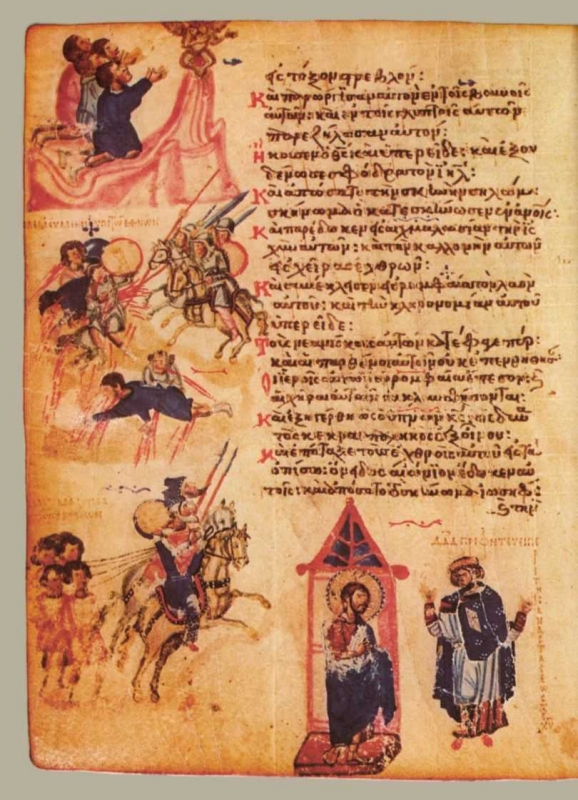 εἰς τόξον στρεβλόν:
Καὶ παρώργισαν αὐτὸν ἐν τοῖς βουνοῖς
αὐτῶν· καὶ ἐν τοῖς γλυπτοῖς αὐτῶν
παρεζήλωσαν αὐτόν:
Ἤκουσεν ὁ θς καὶ ὑπερεῖδε· καὶ ἐξου
δένωσε σφόδρα τὸν ιηλ:
Καὶ ἀπώσατο τὴν σκηνὴν σηλώμ·
σκήνωμα ὃ κατεσκήνωσεν ἐν ανοις:
Καὶ παρέδωκεν εἰς αἰχμαλωσίαν τὴν ἰσ
χὺν αὐτῶν· καὶ τὴν καλλονὴν αὐτῶν
εἰς χεῖρας ἐχθρῶν:
Καὶ συνέκλεισεν ἐν ῥομφαία τὸν λαὸν
αὐτοῦ· καὶ τὴν κληρονομίαν αὐτοῦ
ὑπερεῖδε:
Τοὺς νεανίσκους αὐτῶν κατέφαγε πῦρ·
καὶ αἱ παρθένοι αὐτῶν οὐκ
Οἱ ἱερεῖς αὐτῶν ἐν ῥομφαία ἔπεσον·
αἱ χῆραι αὐτῶν οὐ κλαυσθήσονται:
Καὶ ἐξηγέρθη ὡς ὁ ὑπνῶν κς· ὡς δυνα
τὸς κεκραιπαληκὼς ἐξ οἴνου:
Καὶ ἐπάταξε τοὺς ἐχθροὺς αὐτοῦ εἰς τὰ
ὀπίσω· ὄνειδος αἰώνιον ἔδωκεν αὐ
τοῖς: καὶ ἀπώσατο τὸ σκήνωμα ιωσήφ:
ΔΑΔ ΠΡΟΦΗΤΕΥΕΙ ΠΕ
ΡΙ ΤΗΣ ΑΝΑΣΤΑΣΕΩΣ